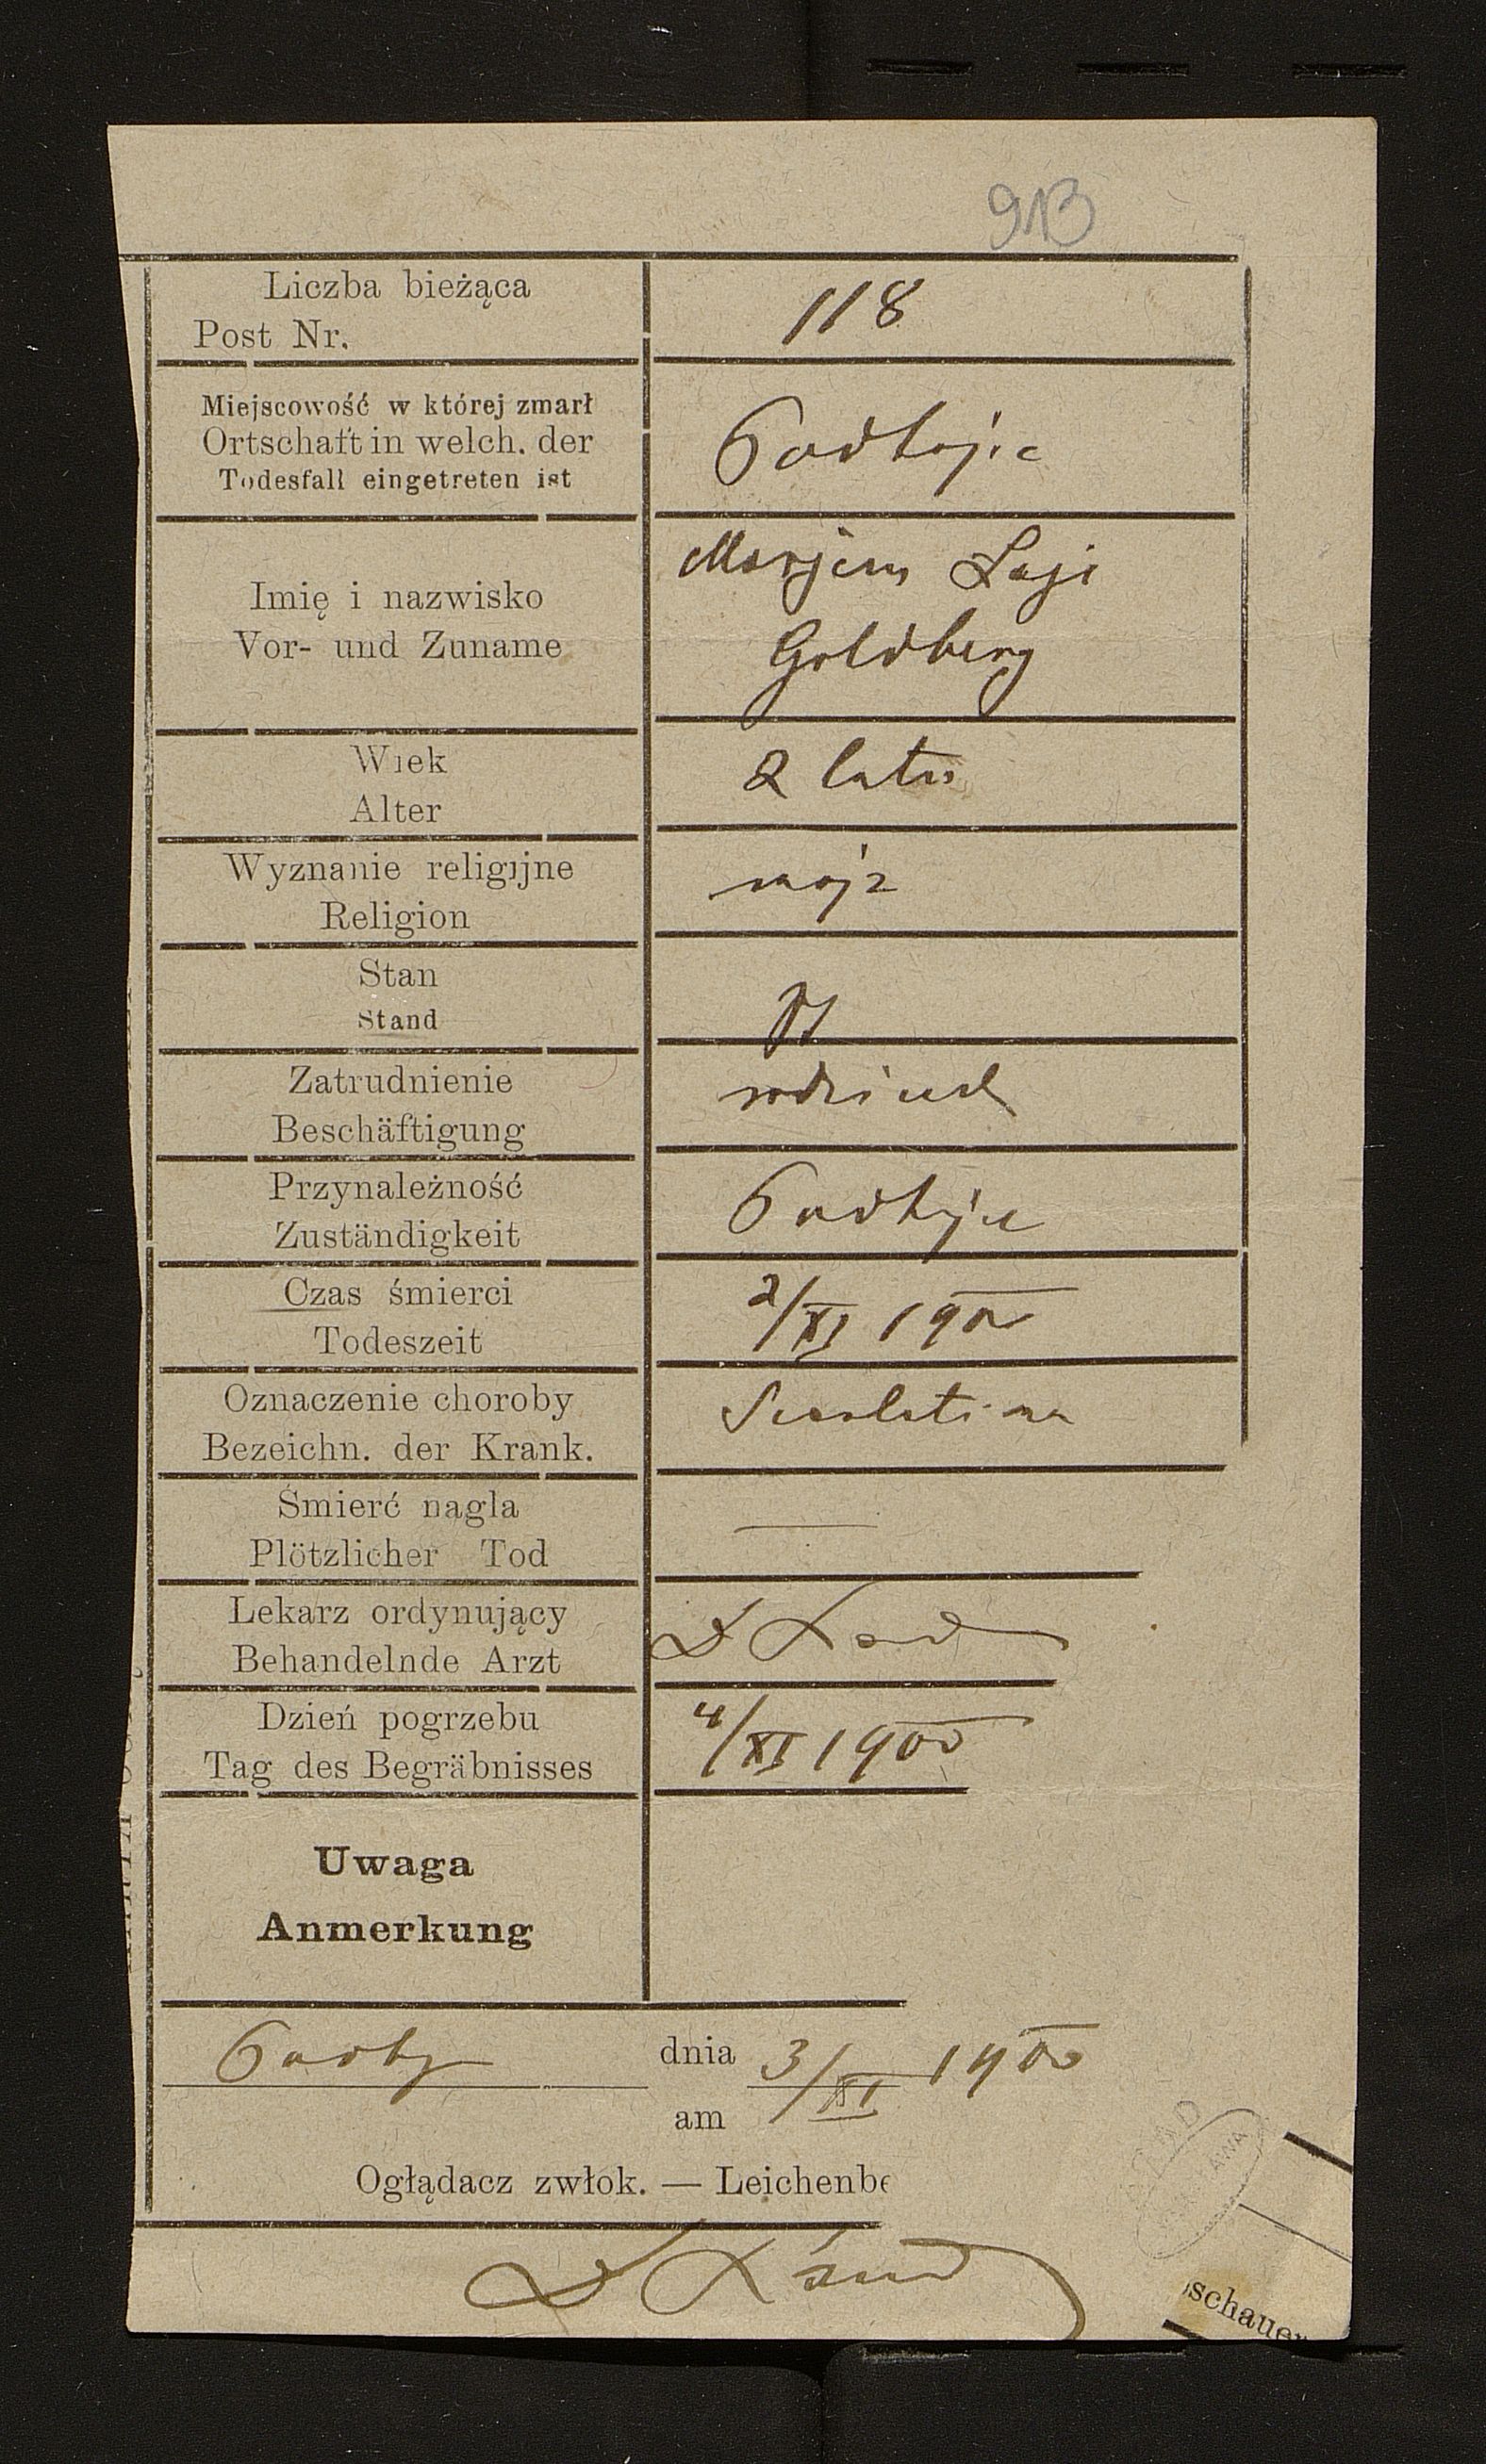 913
Liczba bieżąca
Post Nr.
118
Miejscowość w której zmarł
Ortschaft in welch. der
Todesfall eingetreten ist
Imię i nazwisko
Vor- und Zuname
Marjem
Goldberg
Wiek
Alter
2 lata
Wyznanie religijne
Religion
mojż
Stan
Stand
Zatrudnienie
Beschäftigung
Przynależność
Zuständigkeit
Czas śmierci
Todeszeit
2/XI 1900
Oznaczenie choroby
Bezeichn. der Krank.
Scarlatina
Śmierć nagla
Plötzlicher Tod
—
Lekarz ordynujący
Behandelnde Arzt
Dzień pogrzebu
Tag des Begräbnisses
4/XI 1900
Uwaga
Anmerkung
dnia 3/XI 1900
am
Oglądacz zwłok. — Leichenbe
schauer